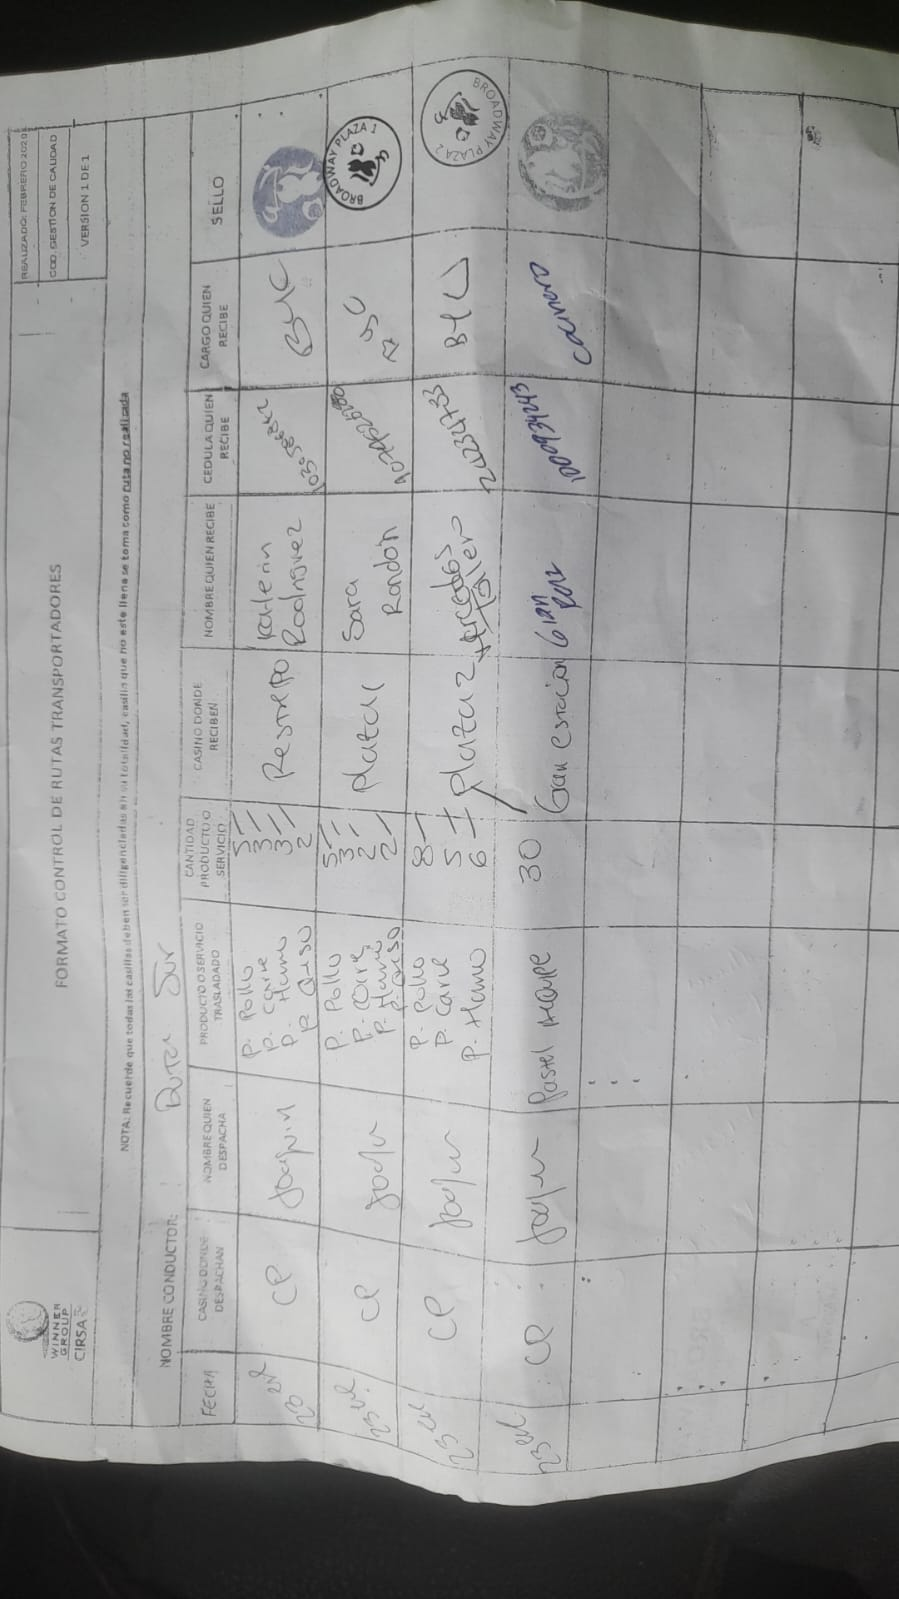 WINNER
GROUP
CIRSA
FORMATO CONTROL DE RUTAS TRANSPORTADORES
REALIZADO: FEBRERO 2020
COD. GESTION DE CALIDAD
VERSION 1 DE 1
NOTA: Recuerde que todas las casillas deben ser diligenciadas en su totalidad, casilla que no este llena se toma como ruta no realizada
NOMBRE CONDUCTOR: Ruta Sur
FECHA
CASINO DONDE DESPACHAN
NOMBRE QUIEN DESPACHA
PRODUCTO O SERVICIO TRASLADADO
CANTIDAD PRODUCTO O SERVICIO
CASINO DONDE RECIBEN
NOMBRE QUIEN RECIBE
CEDULA QUIEN RECIBE
CARGO QUIEN RECIBE
SELLO
23
CP
Joaquin
P. Pollo 5
P. Carne 3
P. Hawo 3
P. Queso 2
Restrepo
Katerin Rodriguez
23
CP
P. Pollo 5
P. Carne 3
P. Hawo 2
P. Queso 2
Plaza 1
Sara Rondón
BROADWAY PLAZA 1
23
CP
P. Pollo 8
P. Carne 5
P. Hawo 6
Plaza 2
BROADWAY PLAZA 2
23
CP
Pastel
30
Gran Estacion
Gian
1000934243
Camarero